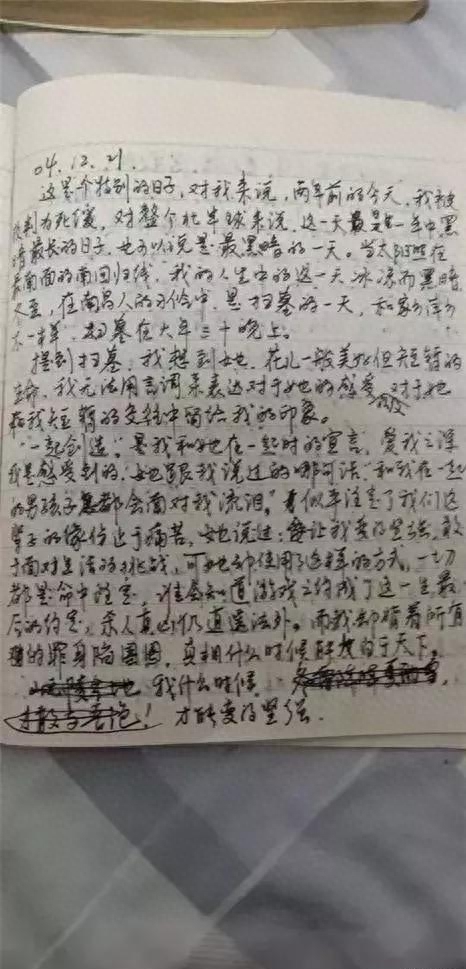 04.12.21.
这是个特别的日子，对我来说，两年前的今天，我被
判为死缓，对整个北半球来说，这一天是一年中黑
暗最长的日子，也可以说是最黑暗的一天。当太阳照在
最南面的南回归线，我的人生中的这一天冰凉而黑暗
冬至，在南昌人的习俗中，是扫墓的一天，和家乡萍乡
不一样，扫墓在大年三十晚上。
提到扫墓，我想到她，花儿一般美好但短暂的
生命，我无法用言词来表达对于她的感受，对于她
在我短暂的交往中留给我的印象。
"一起创造"，是我和她在一起时的宣言，爱我之深
我是感受到的，她跟我说过的哪句话"和我在一起
的男孩子都会面对我流泪。"似乎注定了我们这
辈子的缘份止于痛苦，她说过：要让我变的坚强，敢
于面对生活的挑战，可她却使用了这样的方式，一切
都是命中注定，谁会知道游戏之约成了这一生最
后的约定，杀人真凶仍逍遥法外。而我却背着所有
的罪身陷囹圄，真相什么时候能大白于天下。
我什么时候
才能变的坚强.